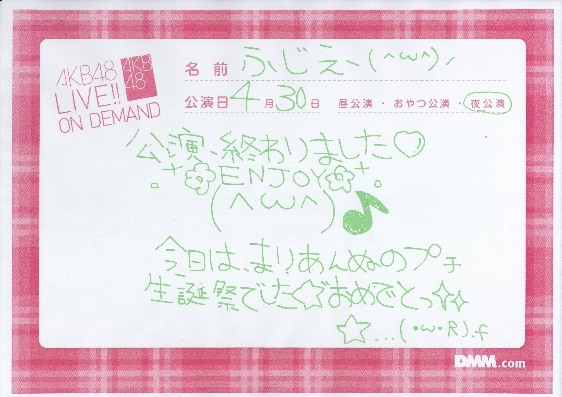 AKB48
LIVE!!
ON DEMAND
AKB
48
名前 ふじえー(^ω^)ノ
公演日 4月30日 昼公演・おやつ公演・夜公演
公演、終わりました♡
ENJOY
(^ω^)♪
今日は、まりあんぬのプチ
生誕祭でした☆おめでとっ☆☆
☆...(・ω・R).f
DMM.com